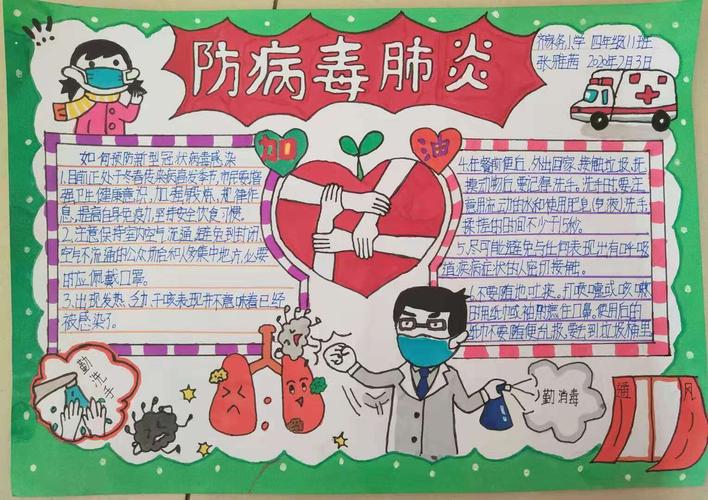 防病毒肺炎
齐务小学 四年级11班
张雅茜 2020年2月3日
加油
如何预防新型冠状病毒感染
1.目前正处于冬春传染病高发季节,市民要增
强卫生健康意识,加强锻炼,规律作
息,提高自身免疫力,坚持安全饮食习惯。
2.注意保持室内空气流通,避免到封闭
空气不流通的公众场合和人多集中地方,必要
时应佩戴口罩。
3.出现发热、干咳表现并不意味着已经
被感染了。
4.在餐前便后、外出回家、接触垃圾、抚
摸动物后,要记得洗手。洗手时要注
意用流动的水和使用肥皂(皂液)洗手,
揉搓的时间不少于15秒。
5.尽可能避免与任何表现出有呼吸
道疾病症状的人密切接触。
6.不要随地吐痰。打喷嚏或咳嗽
时用纸巾或袖肘遮住口鼻,使用后的
纸巾不要随便乱扔,要丢到垃圾桶里
勤洗手
勤消毒
通风